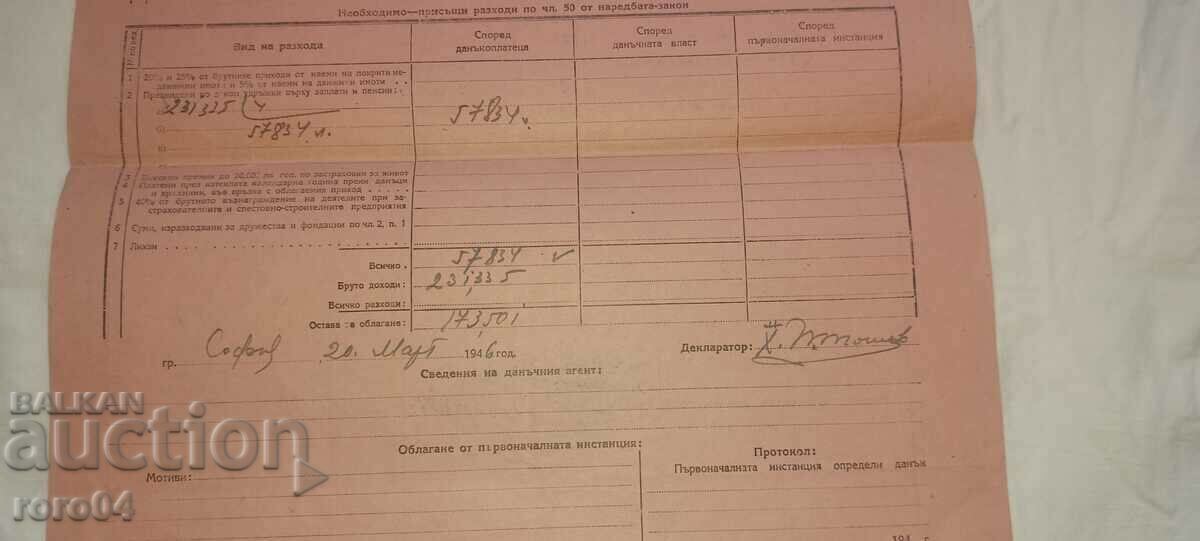 Необходимо—присъщи разходи по чл. 50 от наредбата-закон
Вид на разхода
Според данъкоплатеца
Според данъчната власт
Според първоначалната инстанция
1 20% и 25% от брутните приходи от наеми на покрити не-
движими имоти и 5% от наеми на движими имоти . .
2 удръжки върху заплати и пенсии:
231335 4
57834 л.
57834 л.
3 премии до за застраховки за живот
4 Платени през изтеклата календарна година преки данъци
и във връзка с облагаемия приход . . . . .
5 40% от брутното възнаграждение на деятелите при за-
страхователните и спестовно-строителните предприятия
6 Суми, изразходвани за дружества и фондации по чл. 2, п. 1
7 Лихви . . . . . . . . . .
Всичко . 57834
Бруто доходи: 231,335
Всичко разходи:
Остава за облагане: 173,501
гр. София 20. Март 1946 год. Декларатор:
Сведения на данъчния агент:
Облагане от първоначалната инстанция:
Протокол:
Мотиви:
Първоначалната инстанция определи данък
194 г.
BALKAN
auction
roro04